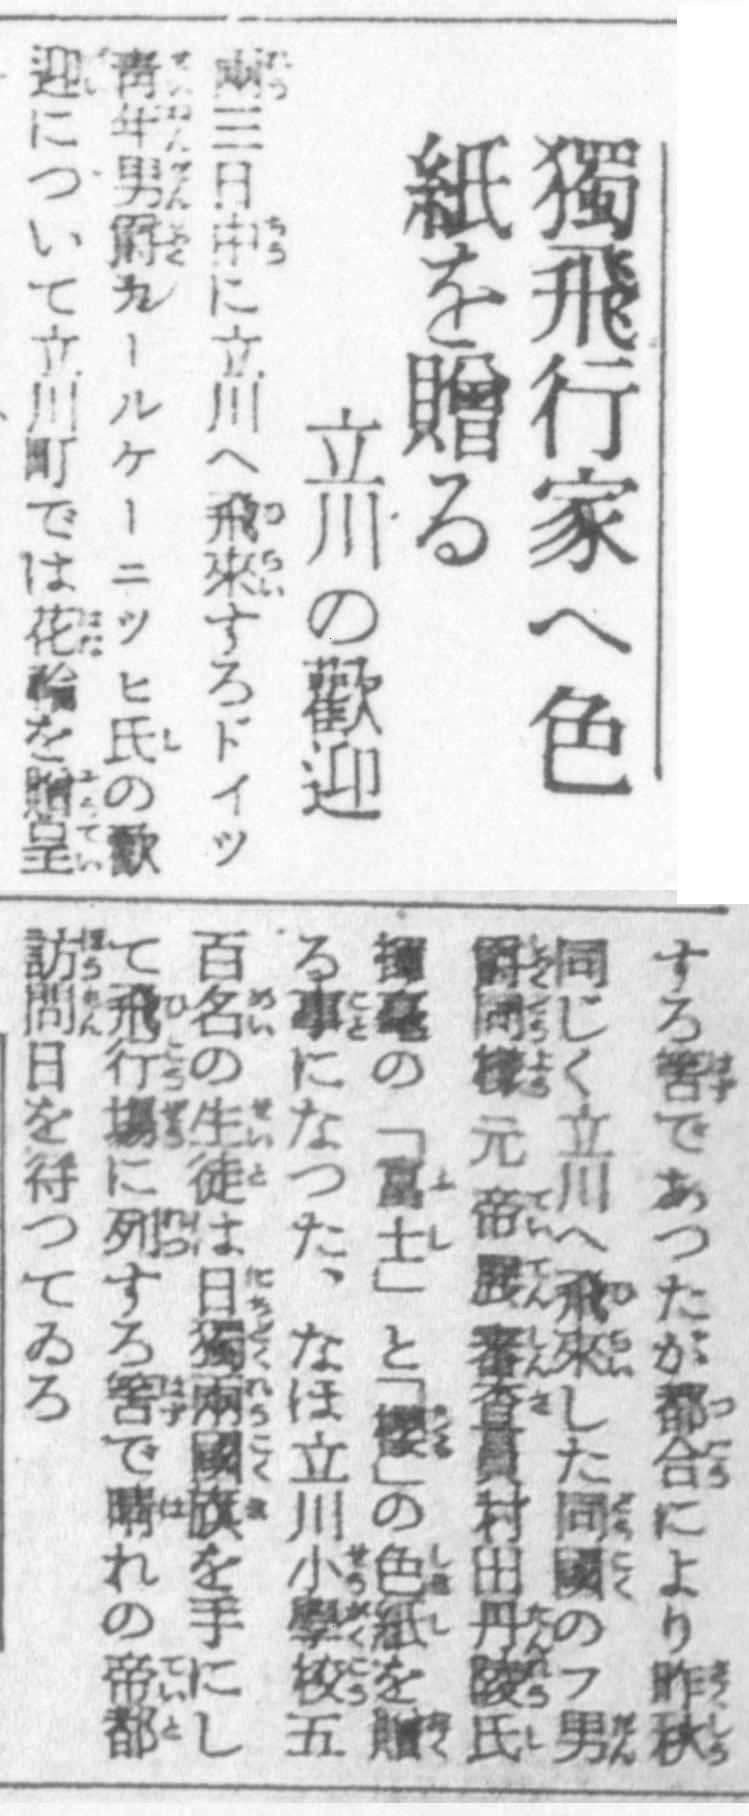 獨飛行家へ色
紙を贈る
立川の歡迎
兩三日中に立川へ飛來するドイツ
青年男爵カールケーニツヒ氏の歡
迎について立川町では花輪を贈呈
する筈であつたが都合により昨秋
同じく立川へ飛來した同國のフ男
爵同樣元帝展審査員村田丹陵氏
揮毫の「富士」と「櫻」の色紙を贈
る事になつた、なほ立川小學校五
百名の生徒は日獨兩國旗を手にし
て飛行場に列する筈で晴れの帝都
訪問日を待つてゐる